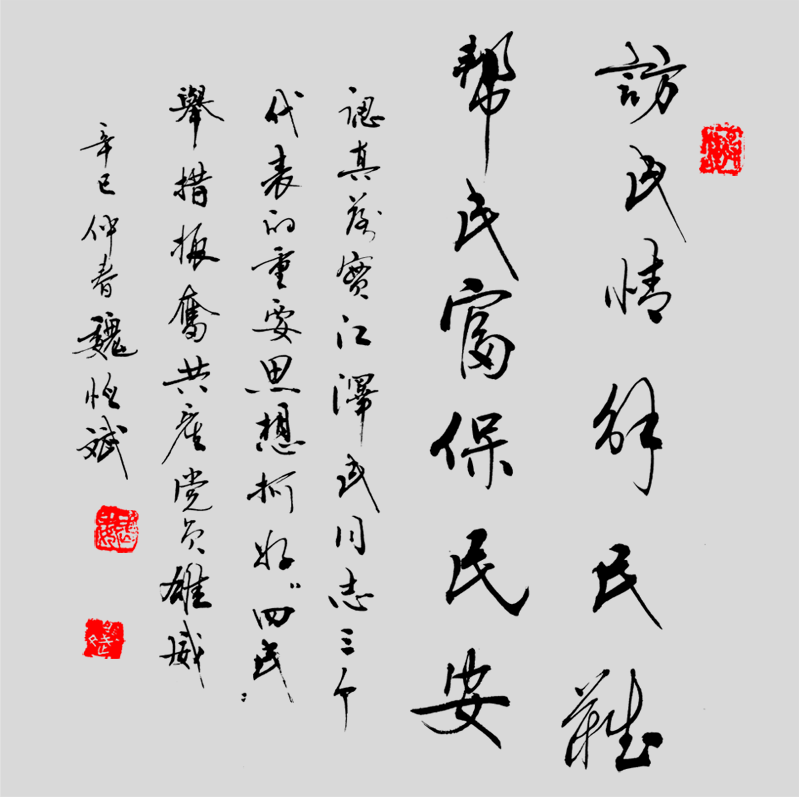 訪民情解民難
幫民富保民安
認真落實江澤民同志三个
代表的重要思想抓好“四民”
舉措振奮共产党员雄威
辛巳仲春魏恒斌